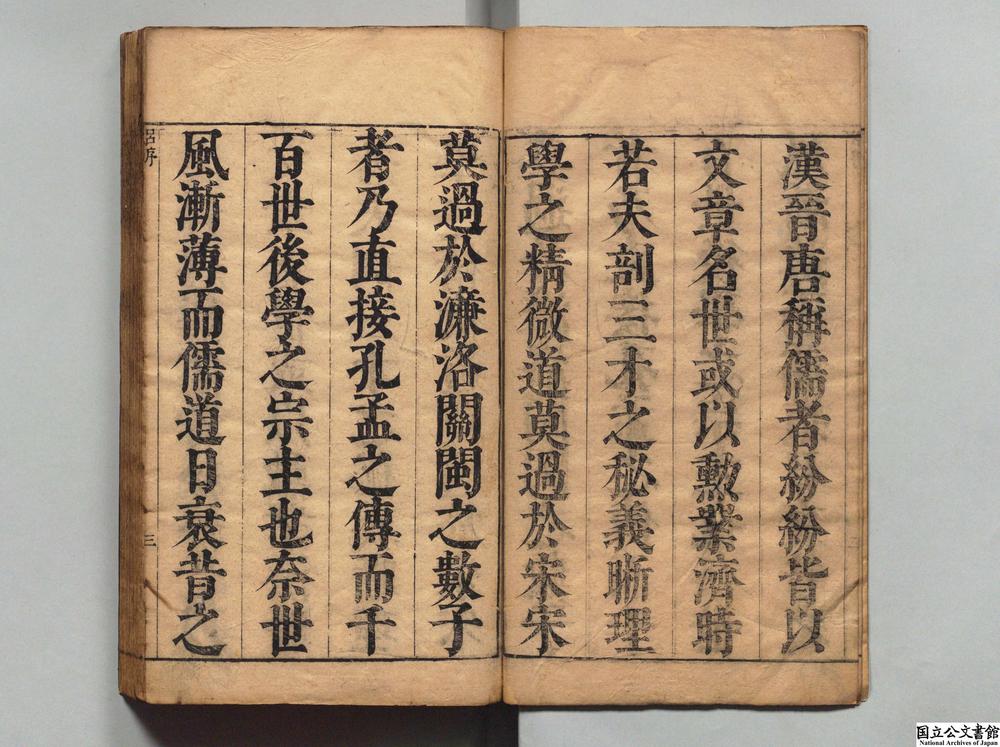 漢晉唐稱儒者紛紛皆以
文章名世或以勲業濟時
若夫剖三才之秘義晰理
學之精微道莫過於宋宋
莫過於濂洛關閩之數子
者乃直接孔孟之傳而千
百世後學之宗主也奈世
風漸薄而儒道日衰昔之
呂序
三
国立公文書館
National Archives of Japan